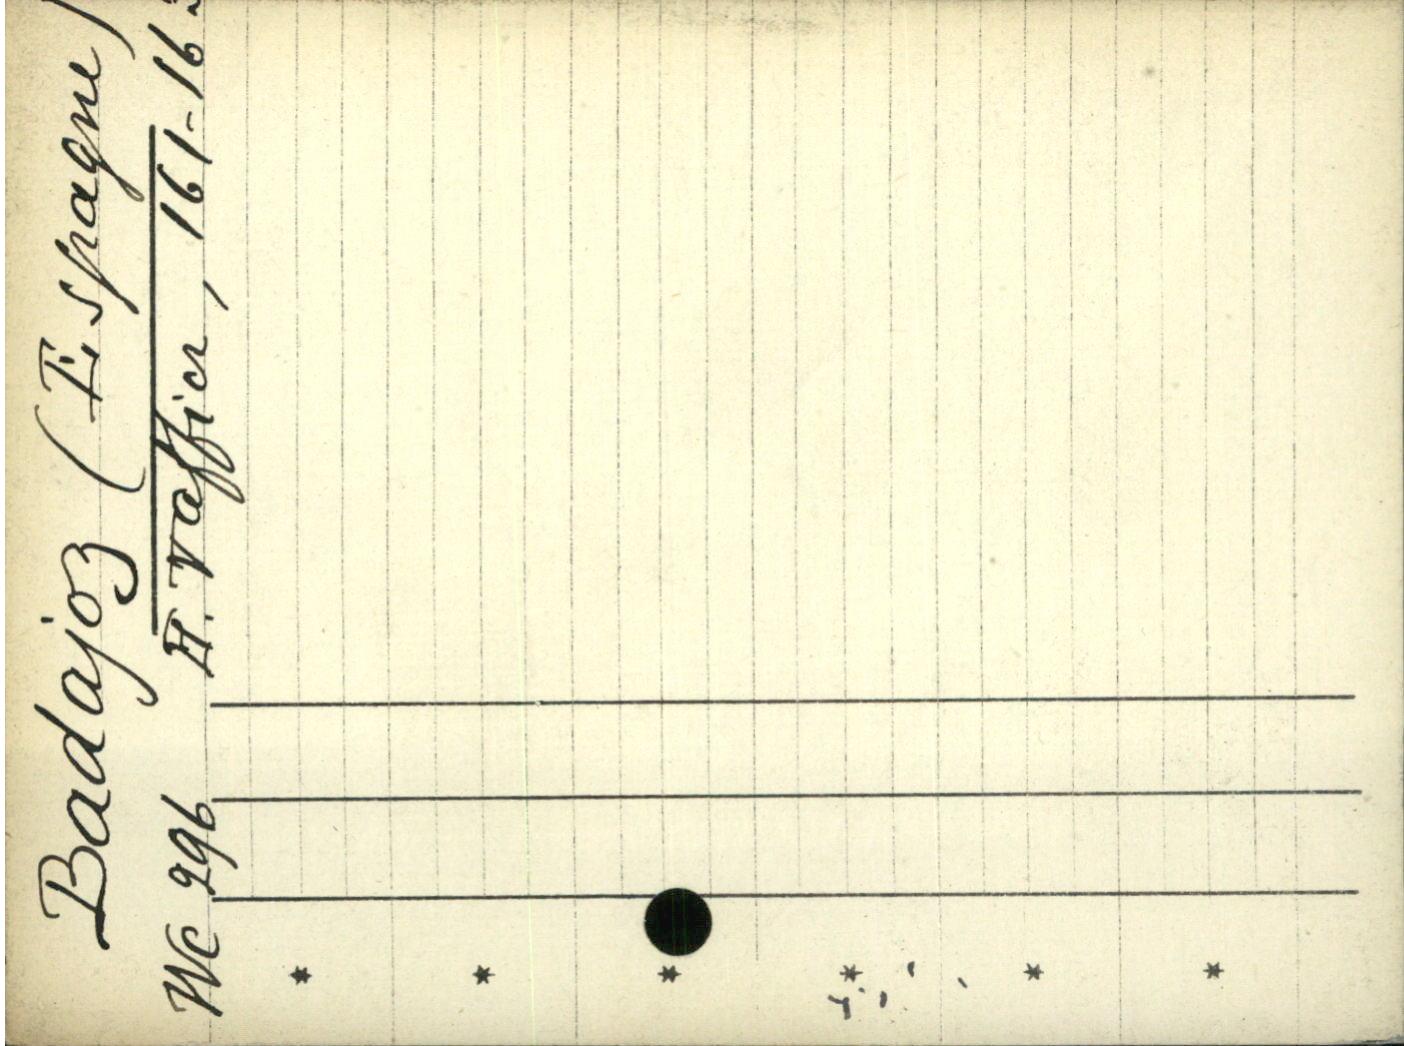 Badajoz (Espagne)
Wc 296 H. Taffier, 161-163